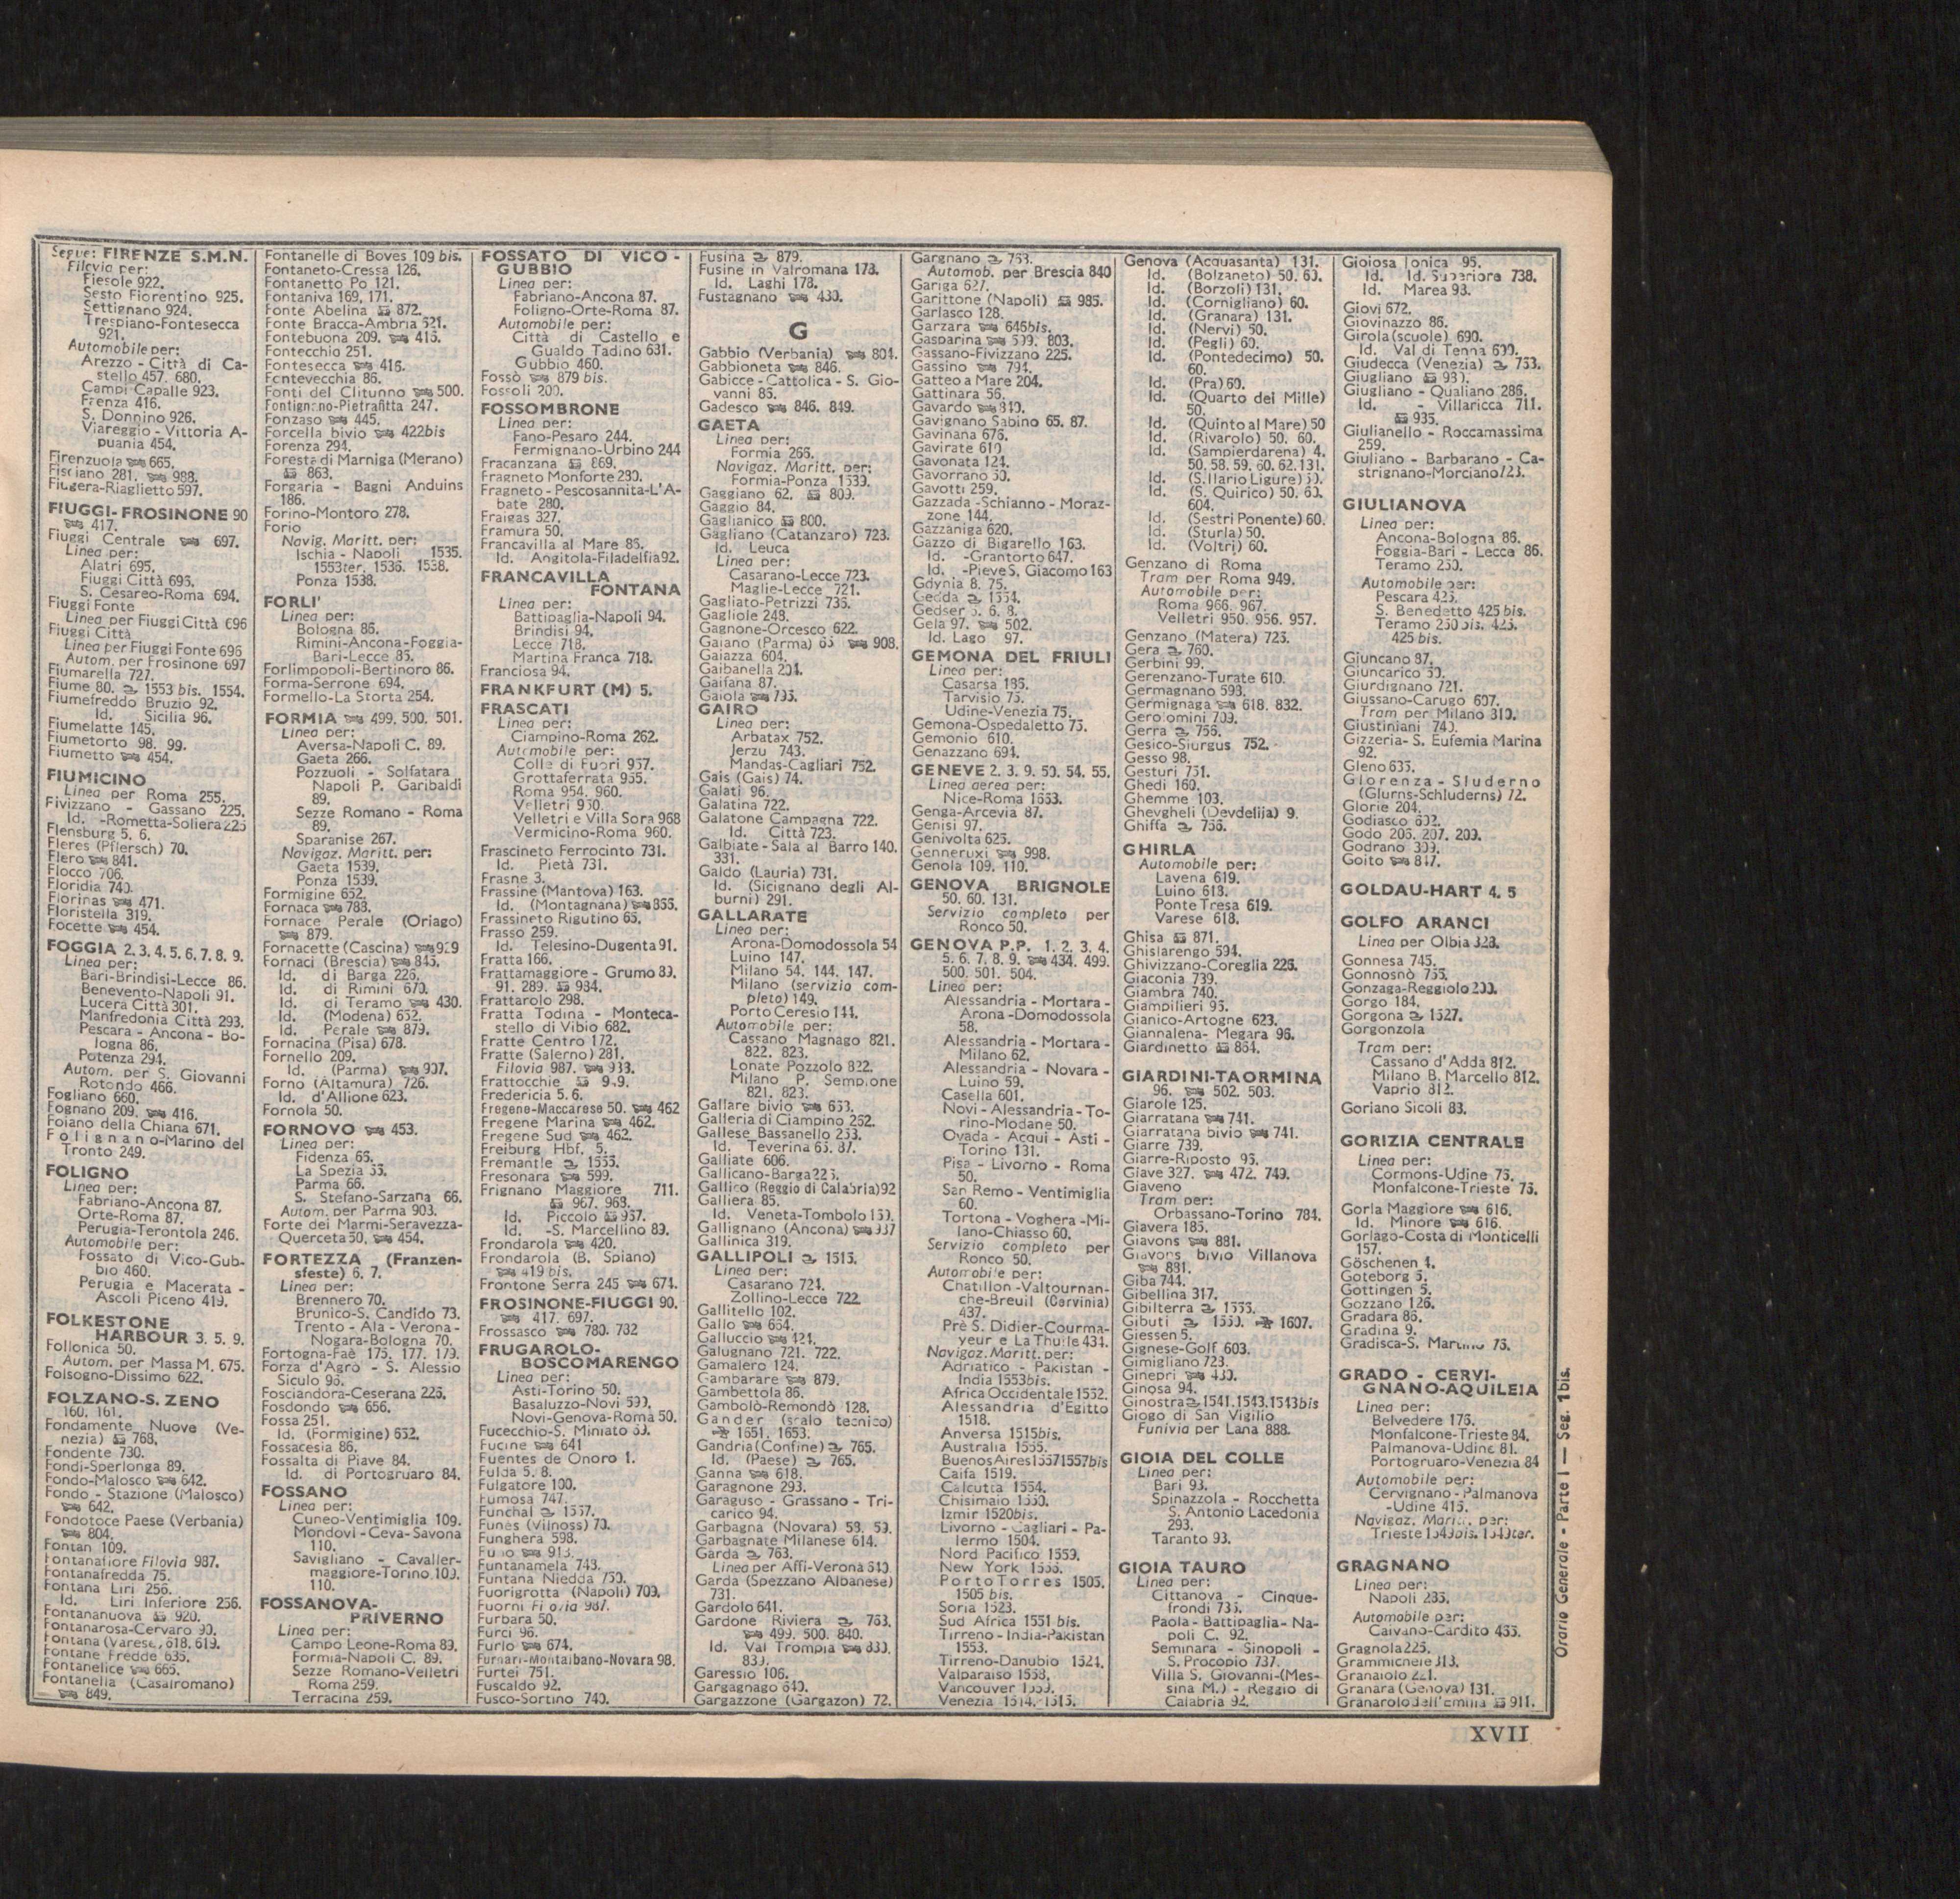 Segue: FIRENZE S.M.N.
Filovia per:
Fiesole 922.
Sesto Fiorentino 925.
Settignano 924.
Trespiano-Fontesecca
921.
Automobile per:
Arezzo - Città di Ca-
stello 457. 680.
Campi Capalle 923.
Frenza 416.
S. Donnino 926.
Viareggio - Vittoria A-
puania 454.
Firenzuola 665.
Fisciano 281. 988.
Fiugera-Riaglietto 597.
FIUGGI-FROSINONE 90
417.
Fiuggi Centrale 697.
Linea per:
Alatri 695.
Fiuggi Città 695.
S. Cesareo-Roma 694.
Fiuggi Fonte
Linea per Fiuggi Città 696
Fiuggi Città
Linea per Fiuggi Fonte 696
Autom. per Frosinone 697
Fiumarella 727.
Fiume 80. 1553 bis. 1554.
Fiumefreddo Bruzio 92.
Id. Sicilia 96.
Fiumelatte 145.
Fiumetorto 98. 99.
Fiumetto 454.
FIUMICINO
Linea per Roma 255.
Fivizzano - Gassano 225.
Id. -Rometta-Soliera 225
Flensburg 5. 6.
Fleres (Pflersch) 70.
Flero 841.
Flocco 706.
Floridia 740.
Florinas 471.
Floristella 319.
Focette 454.
FOGGIA 2. 3. 4. 5. 6. 7. 8. 9.
Linea per:
Bari-Brindisi-Lecce 86.
Benevento-Napoli 91.
Lucera Città 301.
Manfredonia Città 293.
Pescara - Ancona - Bo-
logna 86.
Potenza 294.
Autom. per S. Giovanni
Rotondo 466.
Fogliano 660.
Fognano 209. 416.
Foiano della Chiana 671.
Folignano-Marino del
Tronto 249.
FOLIGNO
Linea per:
Fabriano-Ancona 87.
Orte-Roma 87.
Perugia-Terontola 246.
Automobile per:
Fossato di Vico-Gub-
bio 460.
Perugia e Macerata -
Ascoli Piceno 419.
FOLKESTONE
HARBOUR 3. 5. 9.
Follonica 50.
Autom. per Massa M. 675.
Folsogno-Dissimo 622.
FOLZANO-S. ZENO
160. 161.
Fondamente Nuove (Ve-
nezia) 768.
Fondente 730.
Fondi-Sperlonga 89.
Fondo-Malosco 642.
Fondo - Stazione (Malosco)
642.
Fondotoce Paese (Verbania)
804.
Fontan 109.
Fontanafiore Filovia 987.
Fontanafredda 75.
Fontana Liri 256.
Id. Liri Inferiore 256.
Fontananuova 920.
Fontanarosa-Cervaro 90.
Fontana (Varese) 618. 619.
Fontane Fredde 635.
Fontanelice 665.
Fontanella (Casalromano)
849.
Fontanelle di Boves 109 bis.
Fontaneto-Cressa 126.
Fontanetto Po 121.
Fontaniva 169. 171.
Fonte Abelina 872.
Fonte Bracca-Ambria 621.
Fontebuona 209. 415.
Fontecchio 251.
Fontesecca 416.
Fontevecchia 86.
Fonti del Clitunno 500.
Fontignano-Pietrafitta 247.
Fonzaso 445.
Forcella bivio 422bis
Forenza 294.
Foresta di Marniga (Merano)
863.
Forgaria - Bagni Anduins
186.
Forino-Montoro 278.
Forio
Navig. Maritt. per:
Ischia - Napoli 1535.
1553ter. 1536. 1538.
Ponza 1538.
FORLI'
Linea per:
Bologna 86.
Rimini-Ancona-Foggia-
Bari-Lecce 86.
Forlimpopoli-Bertinoro 86.
Forma-Serrone 694.
Formello-La Storta 254.
FORMIA 499. 500. 501.
Linea per:
Aversa-Napoli C. 89.
Gaeta 266.
Pozzuoli - Solfatara
Napoli P. Garibaldi
89.
Sezze Romano - Roma
89.
Sparanise 267.
Navigaz. Maritt. per:
Gaeta 1539.
Ponza 1539.
Formigine 652.
Fornaca 783.
Fornace Perale (Oriago)
879.
Fornacette (Cascina) 929
Fornaci (Brescia) 845.
Id. di Barga 225.
Id. di Rimini 670.
Id. di Teramo 430.
Id. (Modena) 652.
Id. Perale 879.
Fornacina (Pisa) 678.
Fornello 209.
Id. (Parma) 907.
Forno (Altamura) 726.
Id. d'Allione 623.
Fornola 50.
FORNOVO 453.
Linea per:
Fidenza 66.
La Spezia 66.
Parma 66.
S. Stefano-Sarzana 66.
Autom. per Parma 903.
Forte dei Marmi-Seravezza-
Querceta 50. 454.
FORTEZZA (Franzen-
sfeste) 6. 7.
Linea per:
Brennero 70.
Brunico-S. Candido 73.
Trento - Ala - Verona -
Nogara-Bologna 70.
Fortogna-Faè 175. 177. 179.
Forza d'Agrò - S. Alessio
Siculo 96.
Fosciandora-Ceserana 225.
Fosdondo 656.
Fossa 251.
Id. (Formigine) 652.
Fossacesia 86.
Fossalta di Piave 84.
Id. di Portogruaro 84.
FOSSANO
Linea per:
Cuneo-Ventimiglia 109.
Mondovì-Ceva-Savona
110.
Savigliano - Cavaller-
maggiore-Torino 109.
110.
FOSSANOVA-
PRIVERNO
Linea per:
Campo Leone-Roma 89.
Formia-Napoli C. 89.
Sezze Romano-Velletri
Roma 259.
Terracina 259.
FOSSATO DI VICO -
GUBBIO
Linea per:
Fabriano-Ancona 87.
Foligno-Orte-Roma 87.
Automobile per:
Città di Castello e
Gualdo Tadino 631.
Gubbio 460.
Fossò 879 bis.
Fossoli 200.
FOSSOMBRONE
Linea per:
Fano-Pesaro 244.
Fermignano-Urbino 244
Fracanzana 869.
Fragneto Monforte 280.
Fragneto - Pescosannita-L'A-
bate 280.
Fraigas 327.
Framura 50.
Francavilla al Mare 86.
Id. Angitola-Filadelfia 92.
FRANCAVILLA
FONTANA
Linea per:
Battipaglia-Napoli 94.
Brindisi 94.
Lecce 718.
Martina Franca 718.
Franciosa 94.
FRANKFURT (M) 5.
FRASCATI
Linea per:
Ciampino-Roma 262.
Automobile per:
Colle di Fuori 957.
Grottaferrata 955.
Roma 954. 960.
Velletri 950.
Velletri e Villa Sora 968
Vermicino-Roma 960.
Frascineto Ferrocinto 731.
Id. Pietà 731.
Frasne 3.
Frassine (Mantova) 163.
Id. (Montagnana) 855.
Frassineto Rigutino 65.
Frasso 259.
Id. Telesino-Dugenta 91.
Fratta 166.
Frattamaggiore - Grumo 89.
91. 289. 984.
Frattarolo 298.
Fratta Todina - Monteca-
stello di Vibio 682.
Fratte Centro 172.
Fratte (Salerno) 281.
Filovia 987. 988.
Frattocchie
Fredericia 5. 6.
Fregene-Maccarese 50. 462
Fregene Marina 462.
Fregene Sud 462.
Freiburg Hbf. 5.
Fremantle 1555.
Fresonara 599.
Frignano Maggiore 711.
967. 968.
Id. Piccolo 967.
Id. -S. Marcellino 89.
Frondarola 420.
Frondarola (B. Spiano)
419 bis.
Frontone Serra 245 674.
FROSINONE-FIUGGI 90.
417. 697.
Frossasco 780. 782
FRUGAROLO-
BOSCOMARENGO
Linea per:
Asti-Torino 50.
Basaluzzo-Novi 599.
Novi-Genova-Roma 50.
Fucecchio-S. Miniato 63.
Fucine 641
Fuentes de Onoro 1.
Fulda 5. 8.
Fulgatore 100.
Fumosa 747.
Funchal 1557.
Funes (Vilnoss) 70.
Funghera 598.
Fu 913.
Funtanamela 743.
Funtana Niedda 750.
Fuorigrotta (Napoli) 709.
Fuorni Filovia 987.
Furbara 50.
Furci 96.
Furlo 674.
Furnari-Montalbano-Novara 98.
Furtei 751.
Fuscaldo 92.
Fusco-Sortino 740.
Fusina 879.
Fusine in Valromana 178.
Id. Laghi 178.
Fustagnano 430.
G
Gabbio (Verbania) 804.
Gabbioneta 846.
Gabicce - Cattolica - S. Gio-
vanni 86.
Gadesco 846. 849.
GAETA
Linea per:
Formia 266.
Navigaz. Maritt. per:
Formia-Ponza 1539.
Gaggiano 62. 809.
Gaggio 84.
Gaglianico 800.
Gagliano (Catanzaro) 723.
Id. Leuca
Linea per:
Casarano-Lecce 723.
Maglie-Lecce 721.
Gagliato-Petrizzi 735.
Gagliole 248.
Gagnone-Orcesco 622.
Gaiano (Parma) 66 908.
Gaiazza 604.
Gaibanella 204.
Gaifana 87.
Gaiola 795.
GAIRO
Linea per:
Arbatax 752.
Jerzu 743.
Mandas-Cagliari 752.
Gais (Gais) 74.
Galati 96.
Galatina 722.
Galatone Campagna 722.
Id. Città 723.
Galbiate - Sala al Barro 140.
331.
Galdo (Lauria) 731.
Id. (Sicignano degli Al-
burni) 291.
GALLARATE
Linea per:
Arona-Domodossola 54
Luino 147.
Milano 54. 144. 147.
Milano (servizio com-
pleto) 149.
Porto Ceresio 144.
Automobile per:
Cassano Magnago 821.
822. 823.
Lonate Pozzolo 822.
Milano P. Sempione
821. 823.
Gallare bivio 653.
Galleria di Ciampino 262.
Gallese Bassanello 253.
Id. Teverina 65. 87.
Galliate 606.
Gallicano-Barga 225.
Gallico (Reggio di Calabria) 92
Galliera 85.
Id. Veneta-Tombolo 169.
Gallignano (Ancona) 937
Gallinica 319.
GALLIPOLI 1515.
Linea per:
Casarano 724.
Zollino-Lecce 722
Gallitello 102.
Gallo 664.
Galluccio 424.
Galugnano 721. 722.
Gamalero 124.
Gambarare 879.
Gambettola 86.
Gambolò-Remondò 128.
Gander (scalo tecnico)
1651. 1653.
Gandria (Confine) 765.
Id. (Paese) 765.
Ganna 618.
Garagnone 293.
Garaguso - Grassano - Tri-
carico 94.
Garbagna (Novara) 58. 59.
Garbagnate Milanese 614.
Garda 763.
Linea per Affi-Verona 640
Garda (Spezzano Albanese)
731.
Gardolo 641.
Gardone Riviera 763.
499. 500. 840.
Id. Val Trompia 833.
839.
Garessio 106.
Gargagnago 640.
Gargazzone (Gargazon) 72.
Gargnano 763.
Automob. per Brescia 840
Gariga 627.
Garittone (Napoli) 985.
Garlasco 128.
Garzara 646bis.
Gasparina 599. 803.
Gassano-Fivizzano 225.
Gassino 794.
Gatteo a Mare 204.
Gattinara 56.
Gavardo 840.
Gavignano Sabino 65. 87.
Gavinana 676.
Gavirate 610
Gavonata 124.
Gavorrano 50.
Gavotti 259.
Gazzada -Schianno - Moraz-
zone 144.
Gazzaniga 620.
Gazzo di Bigarello 163.
Id. -Grantorto 647.
Id. -Pieve S. Giacomo 163
Gdynia 8. 75.
Gedda 1554.
Gedser 5. 6. 8.
Gela 97. 502.
Id. Lago 97.
GEMONA DEL FRIULI
Linea per:
Casarsa 186.
Tarvisio 75.
Udine-Venezia 75.
Gemona-Ospedaletto 75.
Gemonio 610.
Genazzano 694.
GENEVE 2. 3. 9. 50. 54. 55.
Linea aerea per:
Nice-Roma 1663.
Genga-Arcevia 87.
Genisi 97.
Genivolta 625.
Genneruxi 998.
Genola 109. 110.
GENOVA BRIGNOLE
50. 60. 131.
Servizio completo per
Ronco 50.
GENOVA P.P. 1. 2. 3. 4.
5. 6. 7. 8. 9. 434. 499.
500. 501. 504.
Linea per:
Alessandria - Mortara -
Arona -Domodossola
58.
Alessandria - Mortara -
Milano 62.
Alessandria - Novara -
Luino 59.
Casella 601.
Novi - Alessandria - To-
rino-Modane 50.
Ovada - Acqui - Asti -
Torino 131.
Pisa - Livorno - Roma
50.
San Remo - Ventimiglia
60.
Tortona - Voghera -Mi-
lano-Chiasso 60.
Servizio completo per
Ronco 50.
Automobile per:
Chatillon -Valtournan-
che-Breuil (Cervinia)
437.
Prè S. Didier-Courma-
yeur e La Thuile 434.
Navigaz. Maritt. per:
Adriatico - Pakistan -
India 1553bis.
Africa Occidentale 1552.
Alessandria d'Egitto
1518.
Anversa 1515bis.
Australia 1555.
Buenos Aires 1557 1557bis
Caifa 1519.
Calcutta 1554.
Chisimaio 1550.
Izmir 1520bis.
Livorno - Cagliari - Pa-
lermo 1504.
Nord Pacifico 1559.
New York 1556.
Porto Torres 1505.
1505 bis.
Soria 1523.
Sud Africa 1551 bis.
Tirreno - India-Pakistan
1553.
Tirreno-Danubio 1524.
Valparaiso 1558.
Vancouver 1559.
Venezia 1514. 1515.
Genova (Acquasanta) 131.
Id. (Bolzaneto) 50. 60.
Id. (Borzoli) 131.
Id. (Cornigliano) 60.
Id. (Granara) 131.
Id. (Nervi) 50.
Id. (Pegli) 60.
Id. (Pontedecimo) 50.
60.
Id. (Pra) 60.
Id. (Quarto dei Mille)
50.
Id. (Quinto al Mare) 50
Id. (Rivarolo) 50. 60.
Id. (Sampierdarena) 4.
50. 58. 59. 60. 62. 131.
Id. (S. Ilario Ligure) 50.
Id. (S. Quirico) 50. 60.
604.
Id. (Sestri Ponente) 60.
Id. (Sturla) 50.
Id. (Voltri) 60.
Genzano di Roma
Tram per Roma 949.
Automobile per:
Roma 966. 967.
Velletri 950. 956. 957.
Genzano (Matera) 725.
Gera 760.
Gerbini 99.
Gerenzano-Turate 610.
Germagnano 593.
Germignaga 618. 832.
Gerolomini 709.
Gerra 756.
Gesico-Siurgus 752.
Gesso 98.
Gesturi 751.
Ghedi 160.
Ghemme 103.
Ghevgheli (Devdelija) 9.
Ghiffa 756.
GHIRLA
Automobile per:
Lavena 619.
Luino 618.
Ponte Tresa 619.
Varese 618.
Ghisa 871.
Ghislarengo 594.
Ghivizzano-Coreglia 225.
Giaconia 739.
Giambra 740.
Giampilieri 96.
Gianico-Artogne 623.
Giannalena- Megara 96.
Giardinetto 864.
GIARDINI-TAORMINA
96. 502. 503.
Giarole 125.
Giarratana 741.
Giarratana bivio 741.
Giarre 739.
Giarre-Riposto 96.
Giave 327. 472. 749.
Giaveno
Tram per:
Orbassano-Torino 784.
Giavera 185.
Giavons 881.
Giavons bivio Villanova
881.
Giba 744.
Gibellina 317.
Gibilterra 1555.
Gibuti 1550. 1607.
Giessen 5.
Gignese-Golf 603.
Gimigliano 723.
Ginepri 430.
Ginosa 94.
Ginostra 1541. 1543. 1543bis
Giogo di San Vigilio
Funivia per Lana 888.
GIOIA DEL COLLE
Linea per:
Bari 93.
Spinazzola - Rocchetta
S. Antonio Lacedonia
293.
Taranto 93.
GIOIA TAURO
Linea per:
Cittanova - Cinque-
frondi 735.
Paola - Battipaglia - Na-
poli C. 92.
Seminara - Sinopoli -
S. Procopio 737.
Villa S. Giovanni-(Mes-
sina M.) - Reggio di
Calabria 92.
Gioiosa Ionica 95.
Id. Id. Superiore 738.
Id. Marea 98.
Giovi 672.
Giovinazzo 86.
Girola (scuole) 690.
Id. Val di Tenna 690.
Giudecca (Venezia) 753.
Giugliano 980.
Giugliano - Qualiano 286.
Id. - Villaricca 711.
935.
Giulianello - Roccamassima
259.
Giuliano - Barbarano - Ca-
strignano-Morciano 723.
GIULIANOVA
Linea per:
Ancona-Bologna 86.
Foggia-Bari - Lecce 86.
Teramo 250.
Automobile per:
Pescara 425.
S. Benedetto 425 bis.
Teramo 250 bis. 425.
425 bis.
Giuncano 87.
Giuncarico 50.
Giurdignano 721.
Giussano-Carugo 607.
Tram per Milano 310.
Giustiniani 740.
Gizzeria- S. Eufemia Marina
92.
Gleno 635.
Glorenza - Sluderno
(Glurns-Schluderns) 72.
Glorie 204.
Godiasco 602.
Godo 206. 207. 209.
Godrano 309.
Goito 847.
GOLDAU-HART 4. 5
GOLFO ARANCI
Linea per Olbia 328.
Gonnesa 745.
Gonnosnò 755.
Gonzaga-Reggiolo 200.
Gorgo 184.
Gorgona 1527.
Gorgonzola
Tram per:
Cassano d'Adda 812.
Milano B. Marcello 812.
Vaprio 812.
Goriano Sicoli 83.
GORIZIA CENTRALE
Linea per:
Cormons-Udine 76.
Monfalcone-Trieste 76.
Gorla Maggiore 616.
Id. Minore 616.
Gorlago-Costa di Monticelli
157.
Göschenen 4.
Goteborg 5.
Gottingen 5.
Gozzano 126.
Gradara 86.
Gradina 9.
Gradisca-S. Martino 76.
GRADO - CERVI-
GNANO-AQUILEIA
Linea per:
Belvedere 176.
Monfalcone-Trieste 84.
Palmanova-Udine 81.
Portogruaro-Venezia 84
Automobile per:
Cervignano - Palmanova
-Udine 415.
Navigaz. Maritt. per:
Trieste 1543bis. 1543ter.
GRAGNANO
Linea per:
Napoli 285.
Automobile per:
Caivano-Cardito 455.
Gragnola 225.
Grammichele 313.
Granaiolo 221.
Granara (Genova) 131.
Granarolo dell'Emilia 911.
Orario Generale - Parte I — Seg. 1 bis.
XVII